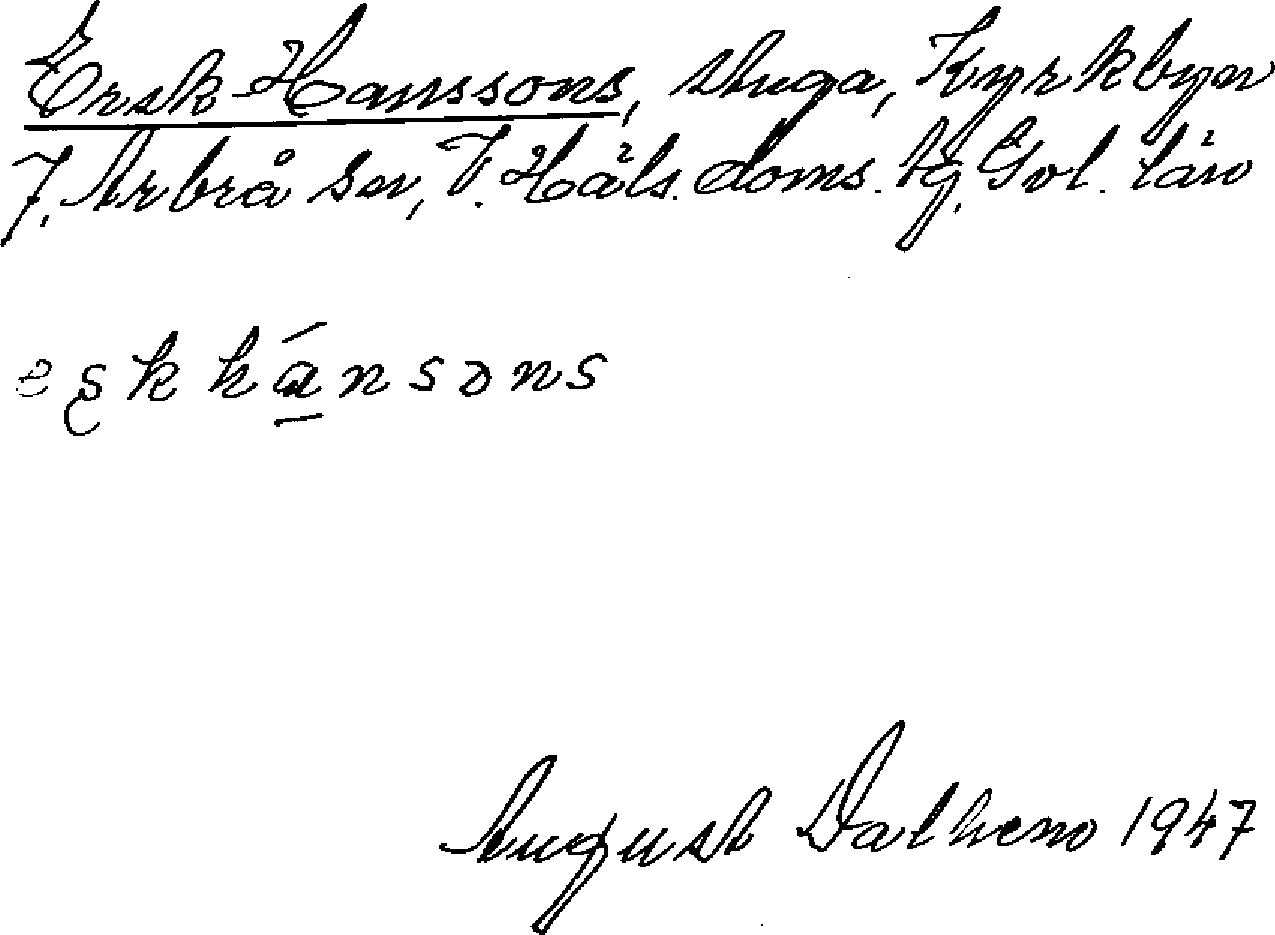 Ersk-Hanssons, stuga, Kyrkbyn
7, Arbrå sn, V. Häls. doms. Xg, Gvl. län
eşkhánsɔns
August Dalhem 1947